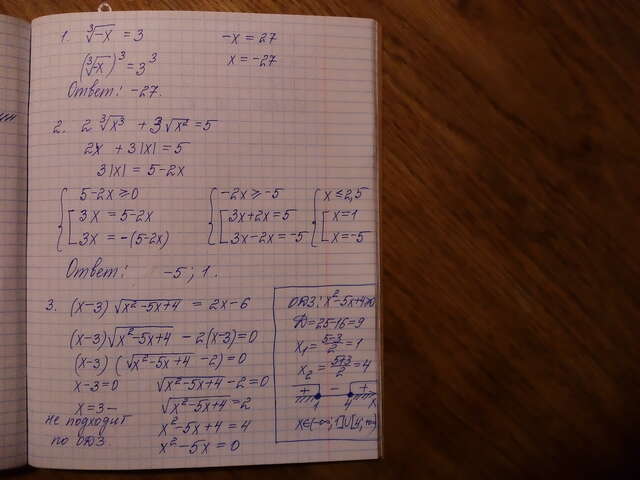 1. ∛-x = 3
-x = 27
(∛-x)³ = 3³
x = -27
Ответ: -27.
2. 2 ∛x³ + 3√x² = 5
2x + 3|x| = 5
3|x| = 5-2x
{ 5-2x ≥ 0
[ 3x = 5-2x
3x = -(5-2x)
{ -2x ≥ -5
[ 3x+2x = 5
3x-2x = -5
{ x ≤ 2,5
[ x = 1
x = -5
Ответ: -5; 1.
3. (x-3) √x²-5x+4 = 2x-6
(x-3)√x²-5x+4 - 2(x-3)=0
(x-3) (√x²-5x+4 -2)=0
x-3=0
√x²-5x+4 -2=0
x=3-
√x²-5x+4 = 2
не подходит
x²-5x+4 = 4
по ОДЗ
x²-5x = 0
ОДЗ: x²-5x+4≥0
D=25-16=9
x₁ = 5-3/2 = 1
x₂ = 5+3/2 = 4
+ - +
1 4 x
x∈(-∞; 1]∪[4; ∞)